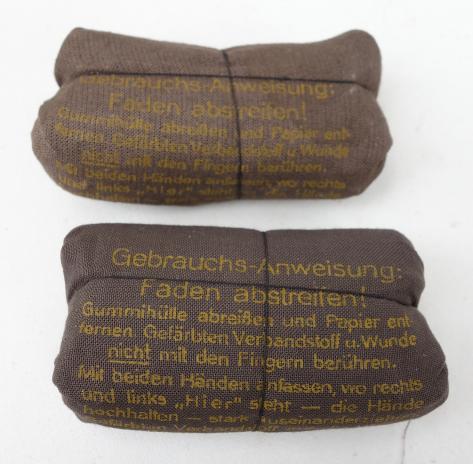 Gebrauchs-Anweisung:
Faden abstreifen!
Gummihülle abreißen und Papier ent-
fernen. Gefärbten Verbandstoff u. Wunde
nicht mit den Fingern berühren.
Mit beiden Händen anfassen, wo rechts
und links „Hier" steht — die Hände
Gebrauchs-Anweisung:
Faden abstreifen!
Gummihülle abreißen und Papier ent-
fernen. Gefärbten Verbandstoff u. Wunde
nicht mit den Fingern berühren.
Mit beiden Händen anfassen, wo rechts
und links „Hier" steht — die Hände
hochhalten — stark auseinanderziehen